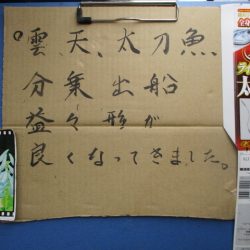 雲天、太刀魚
分乗出船
益々形が
良くなってきました。
太